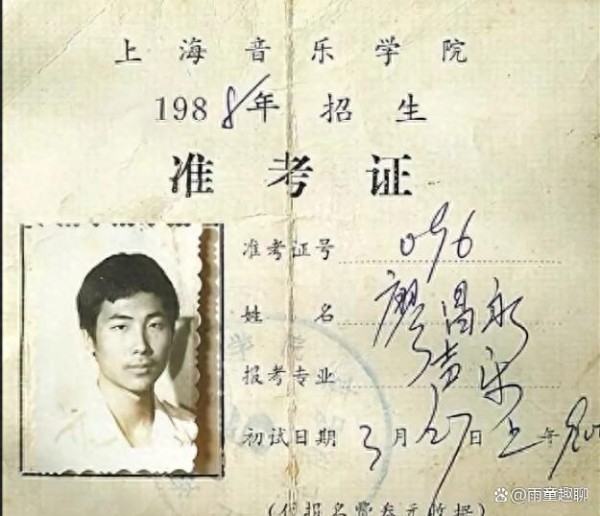 上海音乐学院
1988年招生
准考证
准考证号 096
姓名 廖昌永
报考专业 声乐
初试日期 3月27日上午8:00
(代报名费叁元收据)
@雨童趣聊